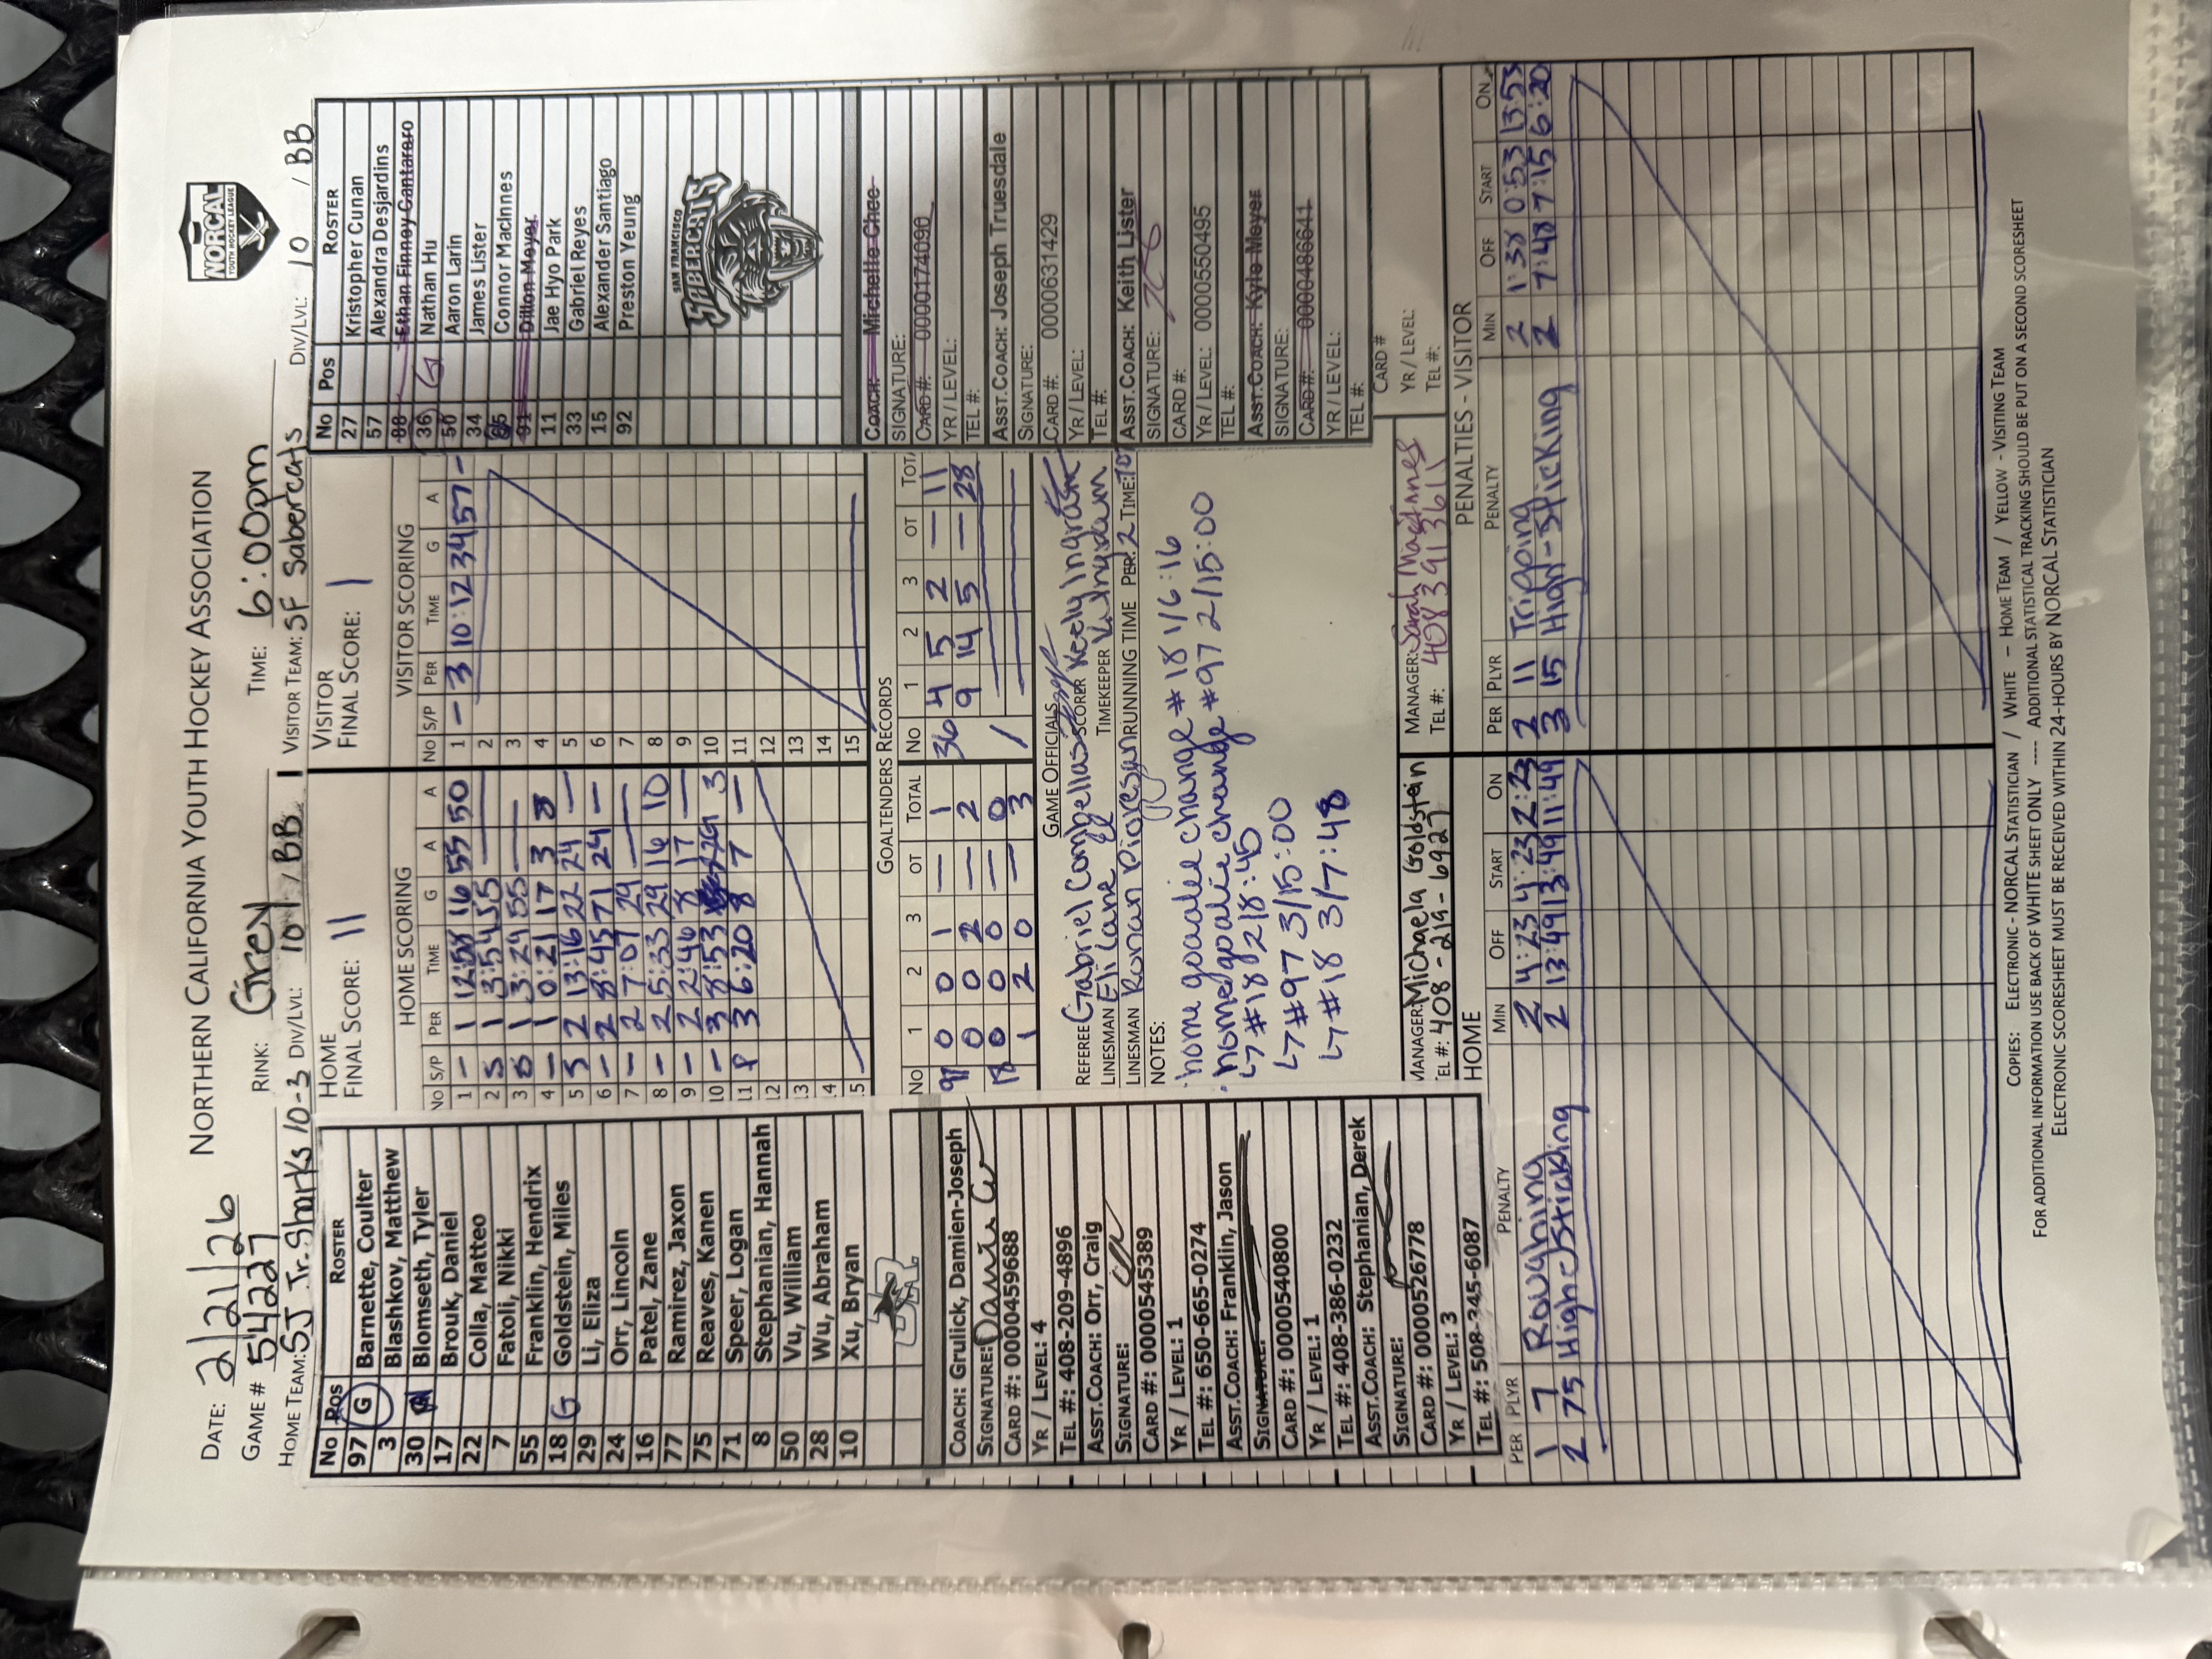 NORTHERN CALIFORNIA YOUTH HOCKEY ASSOCIATION
NORCAL
YOUTH HOCKEY LEAGUE
DATE: 2/21/26
RINK: Grey
TIME: 6:00pm
GAME # 5422
HOME TEAM: SJ Jr. Sharks 10-3 DIV/LVL: 10 / BB
VISITOR TEAM: SF Sabercats DIV/LVL: 10 / BB
No Pos ROSTER
97 G Barnette, Coulter
3 Blashkov, Mathew
30 Blomseth, Tyler
17 Brouk, Daniel
22 Colla, Matteo
7 Fatoli, Nikki
55 Franklin, Hendrix
18 G Goldstein, Miles
29 Li, Eliza
24 Orr, Lincoln
16 Patel, Zane
77 Ramirez, Jaxon
75 Reaves, Kanen
71 Speer, Logan
8 Stephanian, Hannah
50 Vu, William
28 Wu, Abraham
10 Xu, Bryan
COACH: Grulick, Damien-Joseph
SIGNATURE:
CARD #: 0000459688
YR / LEVEL: 4
TEL #: 408-209-4896
ASST.COACH: Orr, Craig
SIGNATURE:
CARD #: 0000545389
YR / LEVEL: 1
TEL #: 650-665-0274
ASST.COACH: Franklin, Jason
SIGNATURE:
CARD #: 0000540800
YR / LEVEL: 1
TEL #: 408-386-0232
ASST.COACH: Stephanian, Derek
SIGNATURE:
CARD #: 0000526778
YR / LEVEL: 3
TEL #: 508-345-6087
HOME
FINAL SCORE: 11
VISITOR
FINAL SCORE: 1
HOME SCORING
No S/P PER TIME G A A
1 - 1 12:58 16 55 50
2 S 1 3:54 55
3 1 3:29 55 —
4 - 1 0:21 17 3 8
5 S 2 13:16 22 24 —
6 - 2 8:45 71 24 —
7 - 2 7:07 29 —
8 - 2 5:33 29 16 10
9 - 2 2:46 8 17 —
10 - 3 8:53 29 3
11 P 3 6:20 8 7 —
12
13
14
15
VISITOR SCORING
No S/P PER TIME G A
1 - 3 10:12 34 57 -
2
3
4
5
6
7
8
9
10
11
12
13
14
15
GOALTENDERS RECORDS
No 1 2 3 OT TOTAL
97 0 0 1 — 1
0 0 2 — 2
18 0 0 0 — 0
1 2 0 — 3
No 1 2 3 OT TOT
36 4 5 2 — 11
9 14 5 — 28
GAME OFFICIALS
REFEREE Gabriel
SCORER Keely Ingram
LINESMAN Eli Lane
TIMEKEEPER
LINESMAN Ronan
RUNNING TIME PER: 2 TIME:
NOTES:
·home goalie change #18 1/6:16
·home goalie change #97 2/15:00
↳ #18 2/8:45
↳ #97 3/15:00
↳ #18 3/7:48
MANAGER: Michaela Goldstein
TEL #: 408-219-6927
MANAGER: Sarah MacInnes
TEL #: 408 391 3611
No Pos ROSTER
27 Kristopher Cunan
57 Alexandra Desjardins
88 Ethan Finney Cantararo
36 G Nathan Hu
50 Aaron Larin
34 James Lister
Connor MacInnes
91 Dillon Meyer
11 Jae Hyo Park
33 Gabriel Reyes
15 Alexander Santiago
92 Preston Yeung
SAN FRANCISCO
SABERCATS
COACH: Michelle Chee
SIGNATURE:
CARD #: 0000174090
YR / LEVEL:
TEL #:
ASST.COACH: Joseph Truesdale
SIGNATURE:
CARD #: 0000631429
YR / LEVEL:
TEL #:
ASST.COACH: Keith Lister
SIGNATURE:
CARD #:
YR / LEVEL: 0000550495
TEL #:
ASST.COACH: Kyle Meyer
SIGNATURE:
CARD #: 0000486641
YR / LEVEL:
TEL #:
CARD #
YR / LEVEL:
TEL #:
HOME
PER PLYR PENALTY MIN OFF START ON
1 7 Roughing 2 4:23 4:23 2:23
2 75 High Sticking 2 13:49 13:49 11:49
PENALTIES - VISITOR
PER PLYR PENALTY MIN OFF START ON
2 11 Tripping 2 1:38 0:53 13:53
3 15 High-Sticking 2 7:48 7:15 6:20
COPIES: ELECTRONIC - NORCAL STATISTICIAN / WHITE – HOME TEAM / YELLOW - VISITING TEAM
FOR ADDITIONAL INFORMATION USE BACK OF WHITE SHEET ONLY ---- ADDITIONAL STATISTICAL TRACKING SHOULD BE PUT ON A SECOND SCORESHEET
ELECTRONIC SCORESHEET MUST BE RECEIVED WITHIN 24-HOURS BY NORCAL STATISTICIAN